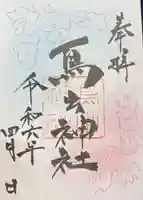 奉拝
烏森神社
令和六年
四月 日